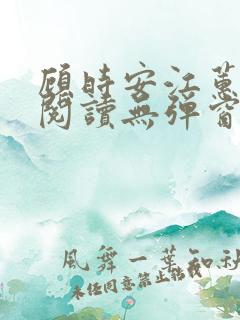 顾时安江蕙
閱讀無彈窗
風舞一葉知秋
未经同意禁止转载